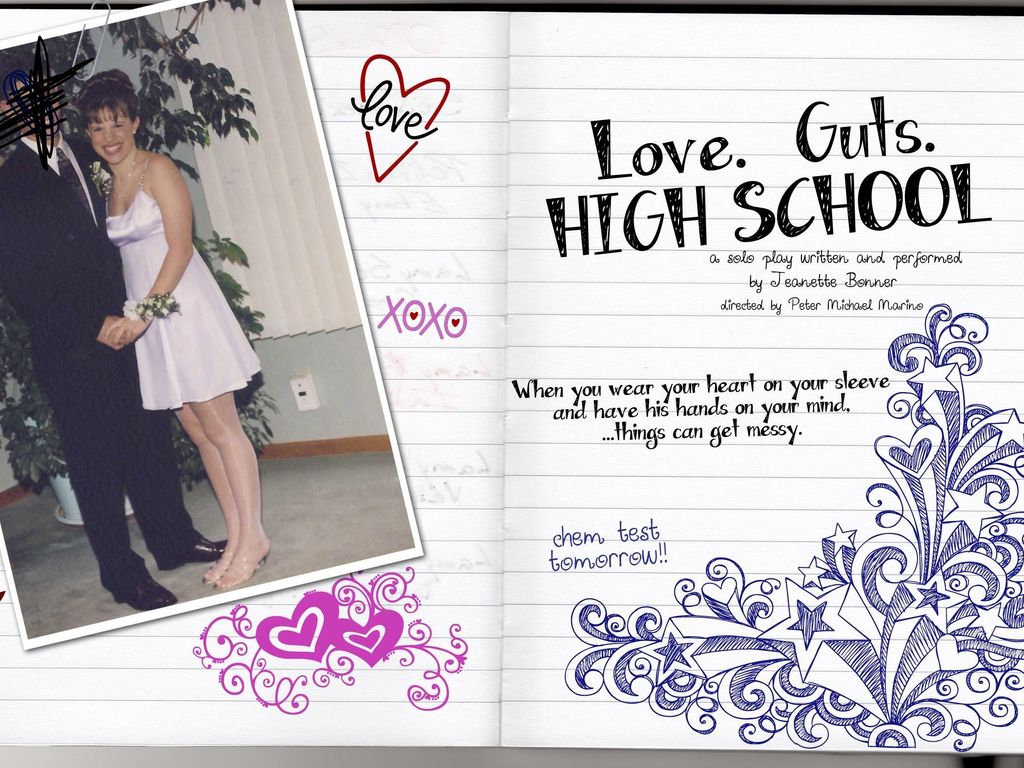 love
XOXO
Love. Guts.
HIGH SCHOOL
a solo play written and performed
by Jeanette Bonner
directed by Peter Michael Marino
When you wear your heart on your sleeve
and have his hands on your mind,
...things can get messy.
chem test
tomorrow!!